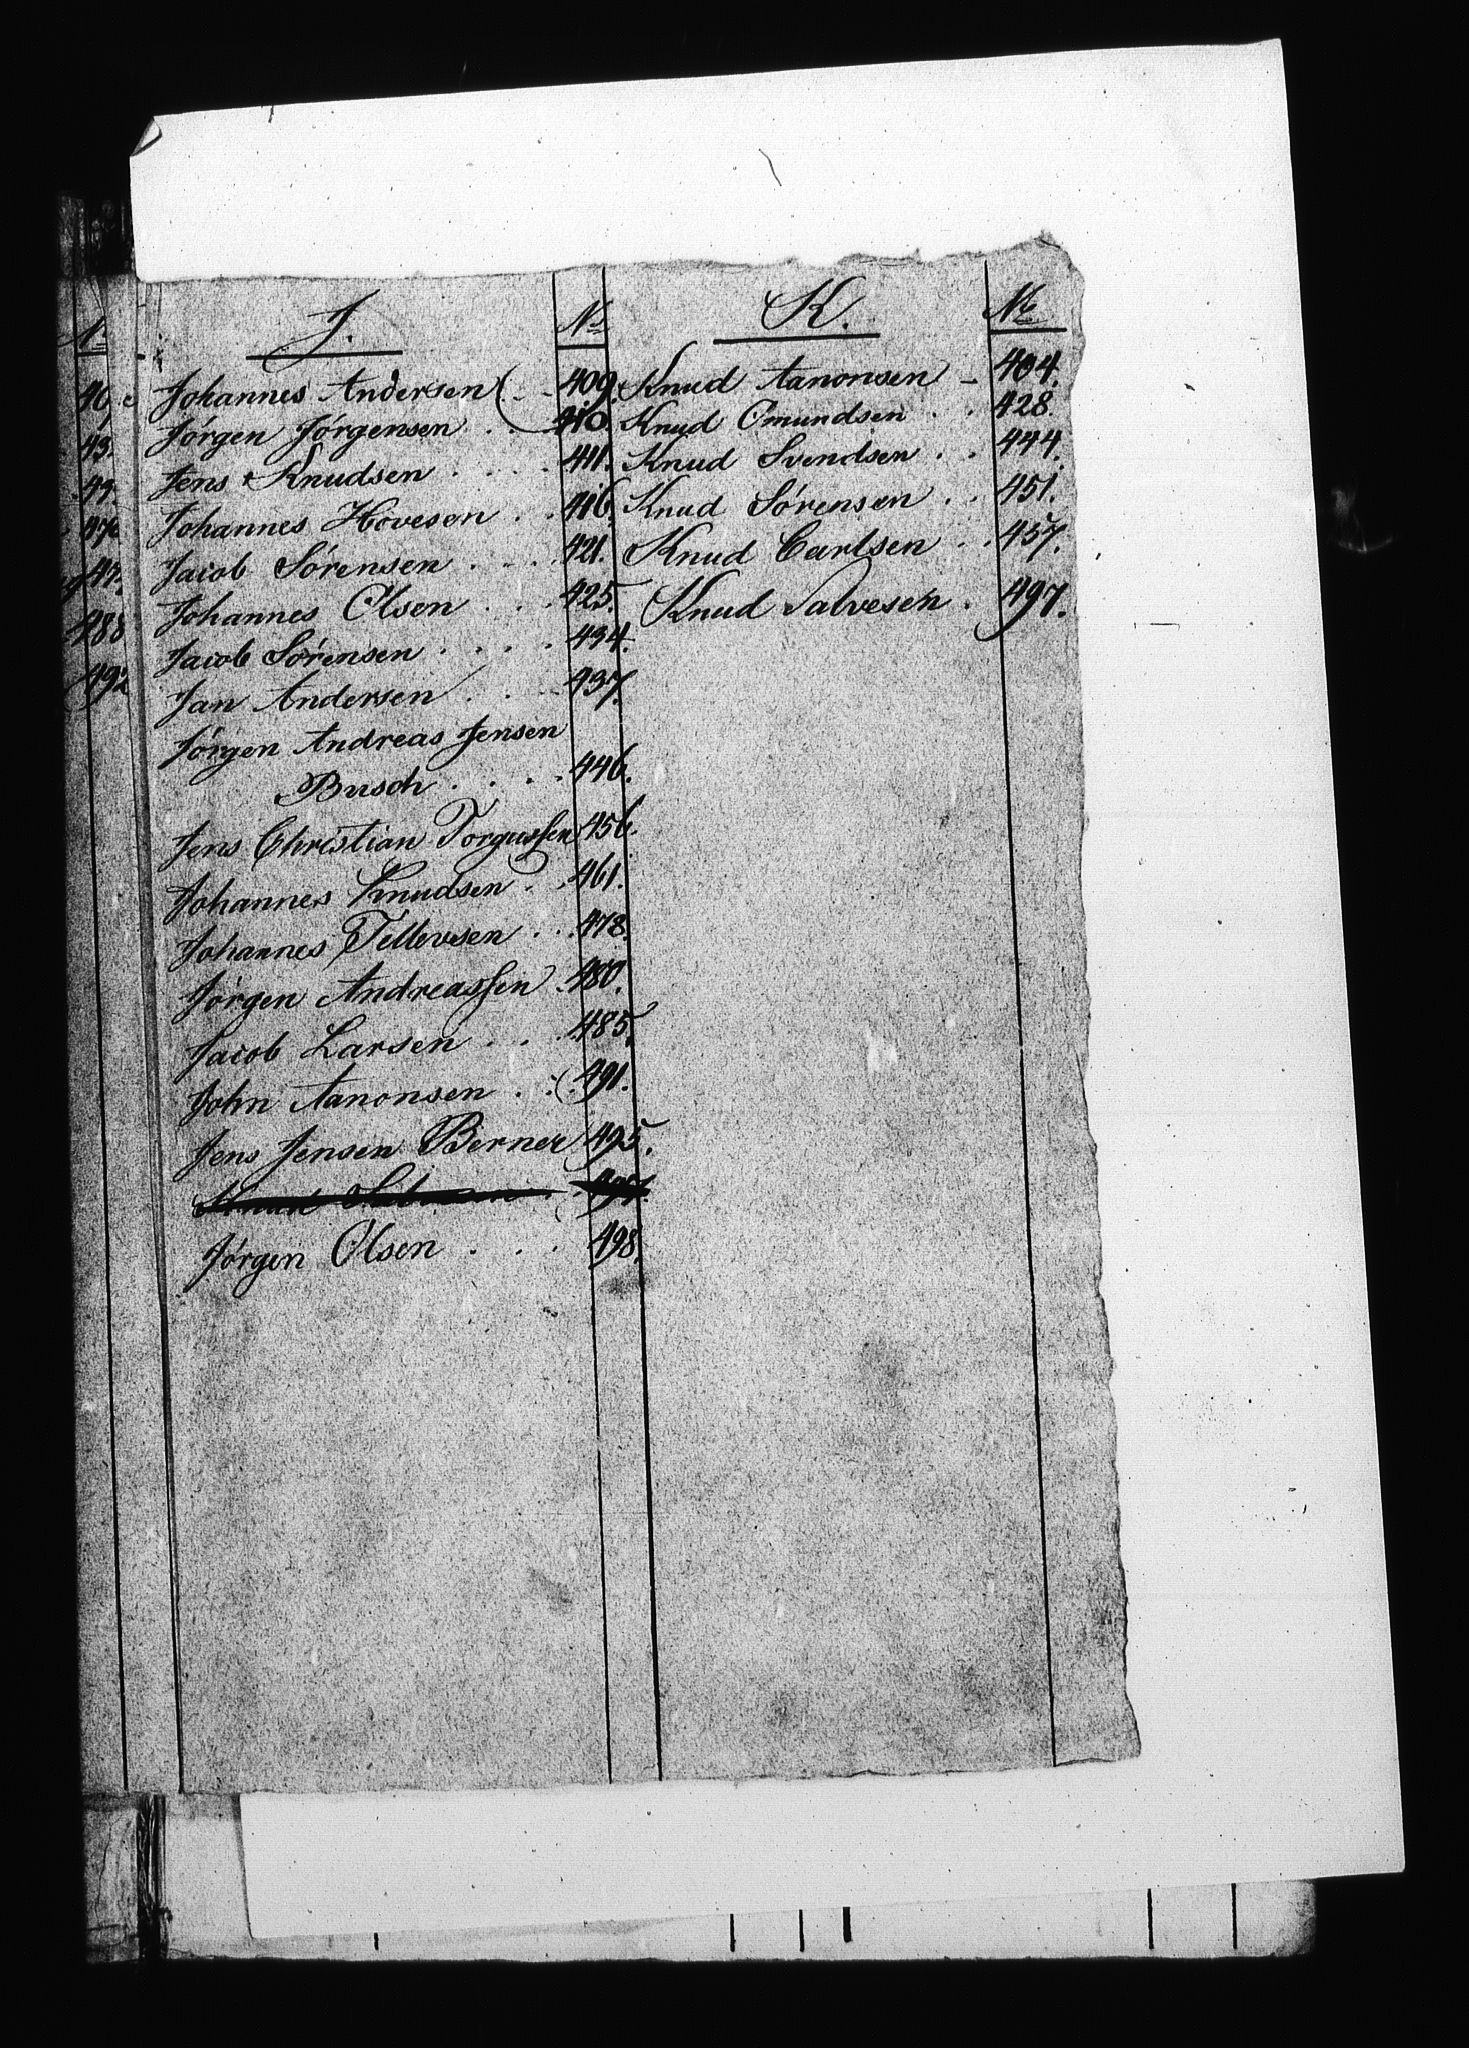 J. No
Johannes Andersen - 409.
Jørgen Jørgensen . . 410.
Jens Knudsen . . . . 411.
Johannes Hovesen . . 416.
Jacob Sørensen . . . . 421.
Johannes Olsen . . . 425.
Jacob Sørensen . . . . 434.
Jan Andersen . . . 437.
Jørgen Andreas Jensen
Busch . . . . 446.
Jens Christian Torgussen 456.
Johannes Knudsen . . 461.
Johannes Tellevsen . . . 478.
Jørgen Andreassen . 480.
Jacob Larsen . . . . 485.
John Aanonsen . . . 491.
Jens Jensen Berner 495.
497.
Jørgen Olsen . . . . 498.
K. No
Knud Aanonsen - 404.
Knud Omundsen . . 428.
Knud Svendsen . . 444.
Knud Sørensen . . 451.
Knud Carlsen . . 457.
Knud Salvesen . 497.
488
492